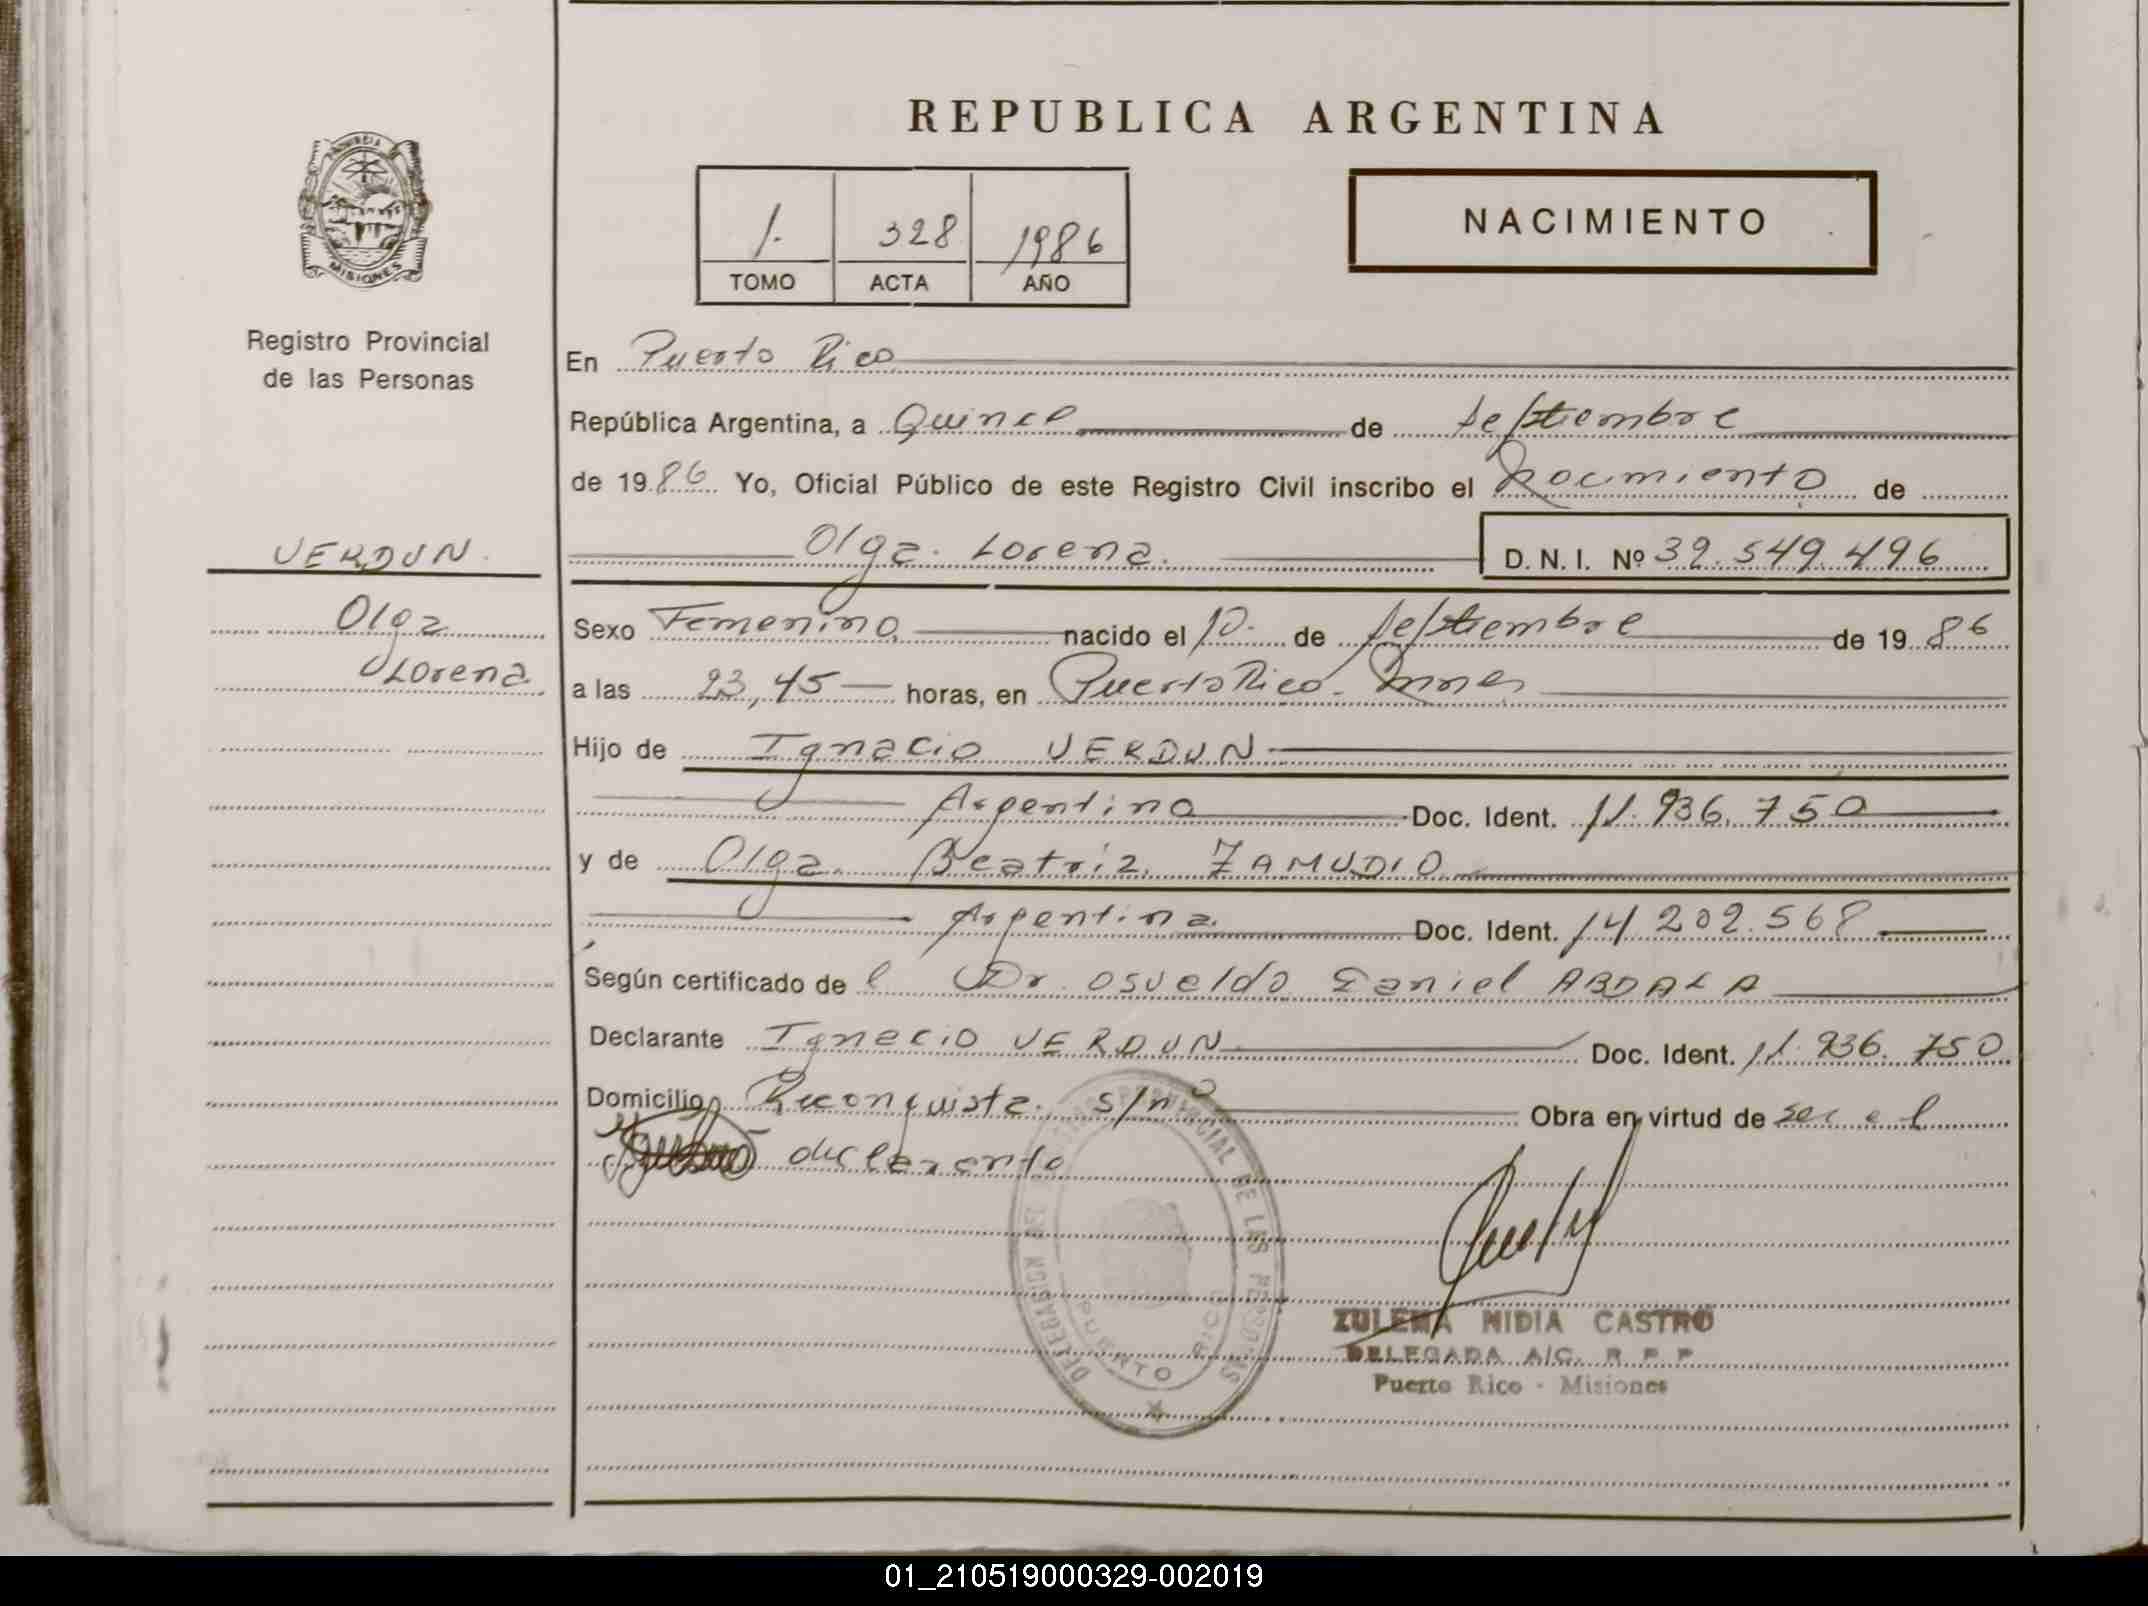 REPUBLICA ARGENTINA
PROVINCIA
MISIONES
Registro Provincial
de las Personas
1.
328
1986
TOMO
ACTA
AÑO
NACIMIENTO
En Puerto Rico
República Argentina, a Quince de Septiembre
de 1986 Yo, Oficial Público de este Registro Civil inscribo el Nacimiento de
Olga Lorena. D. N. I. Nº 32.549.496
VERDUN.
Olga
Lorena
Sexo Femenino nacido el 10. de Septiembre de 1986
a las 23,45 horas, en Puerto Rico - Mnes
Hijo de Ignacio VERDUN
Argentino Doc. Ident. 11.936.750
y de Olga Beatriz ZAMUDIO
Argentina Doc. Ident. 14.202.568
Según certificado del Dr. Osvaldo Daniel ABDALA
Declarante Ignacio VERDUN Doc. Ident. 11.936.750
Domicilio Reconquista s/nº Obra en virtud de ser el
declarante
DELEGACION DEL PROVINCIAL DE LAS PERSONAS
PUERTO RICO
ZULEMA NIDIA CASTRO
DELEGADA A/C. R P P
Puerto Rico - Misiones
01_210519000329-002019